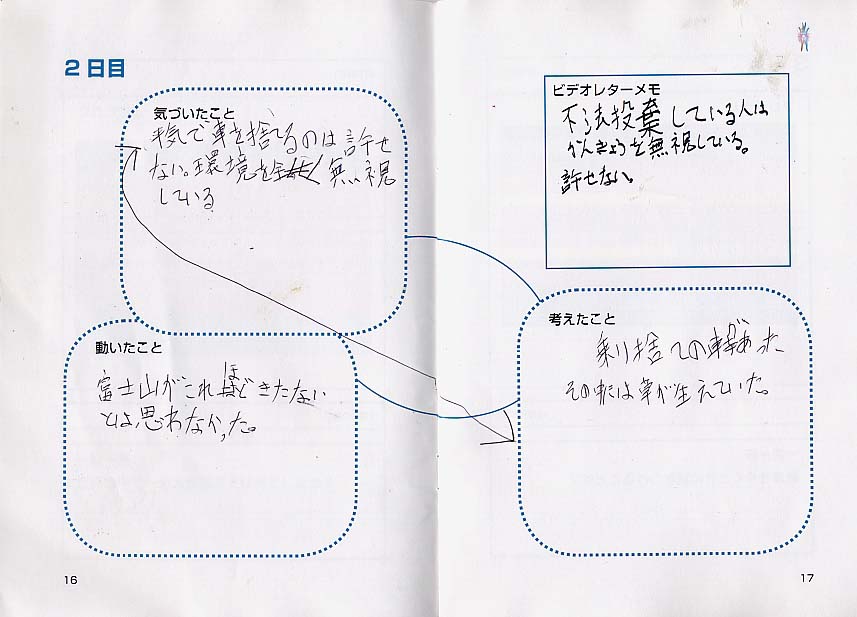 2日目
気づいたこと
平気で車を捨てるのは許せ
ない。環境を全く無視
している
動いたこと
富士山がこれほどきたない
とは思わなかった。
16
ビデオレターメモ
不法投棄している人は
かんきょうを無視している。
許せない。
考えたこと
乗り捨ての車があった
その中には草が生えていた。
17